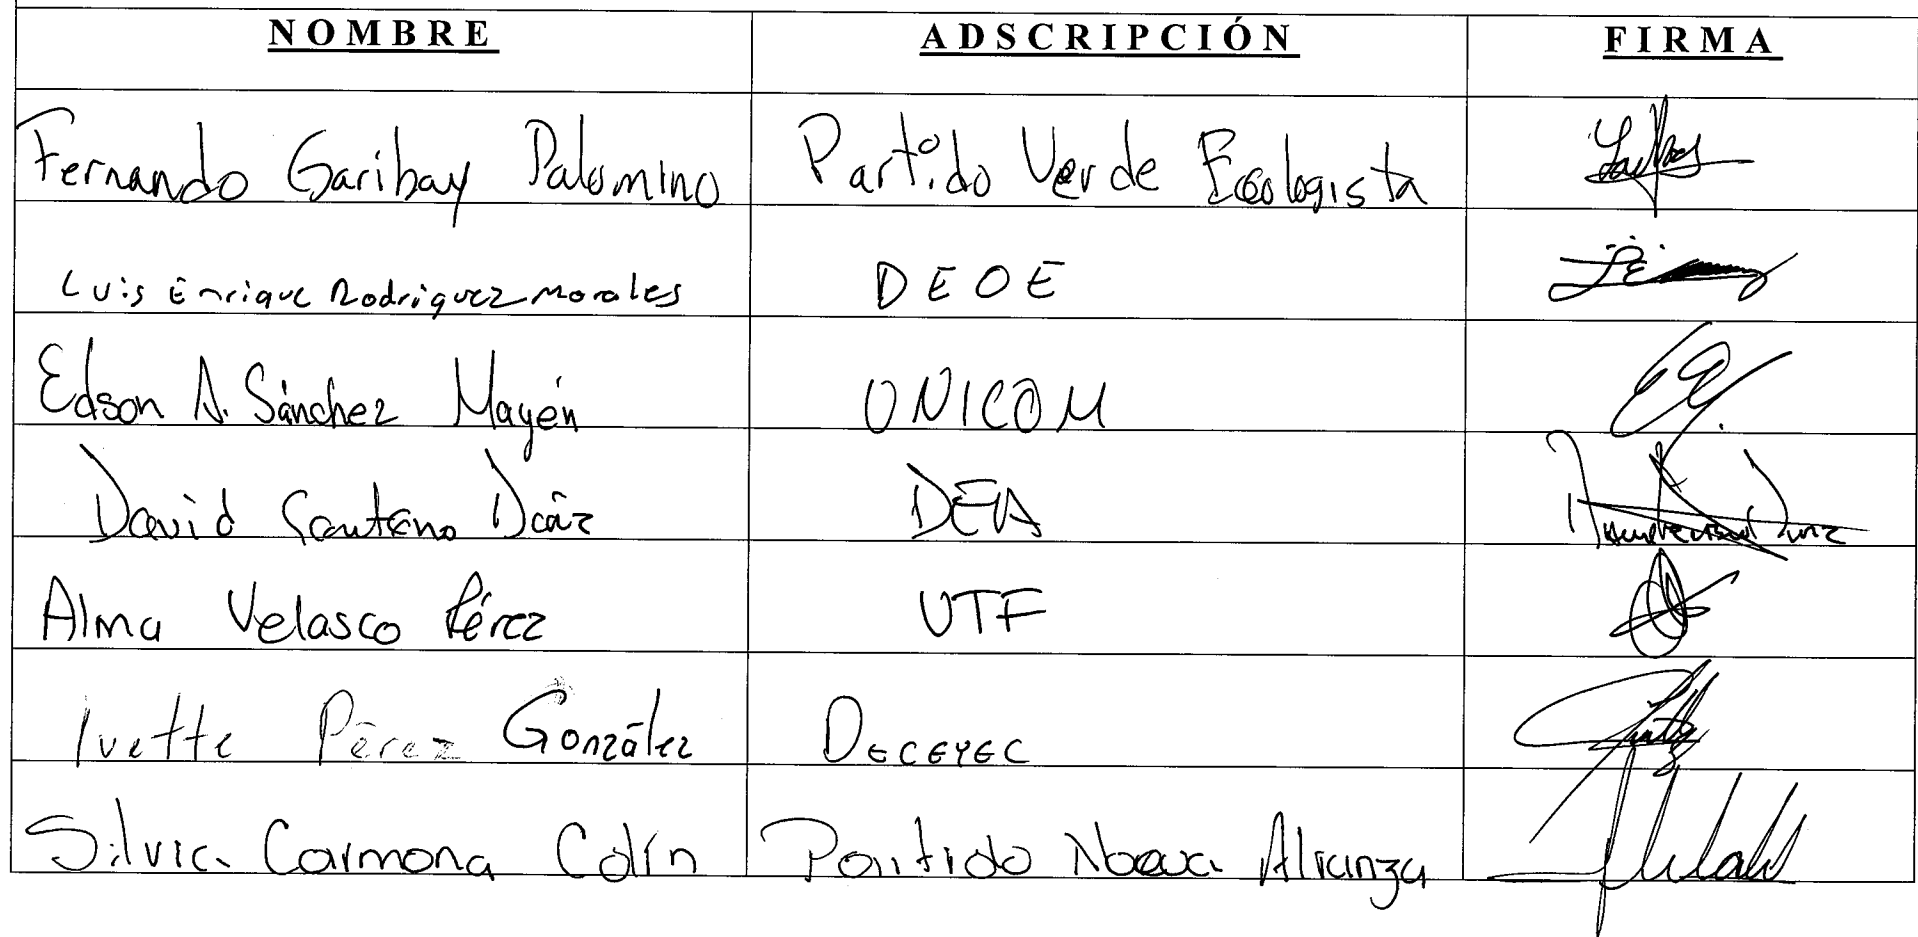 NOMBRE ADSCRIPCIÓN FIRMA
Fernando Garibay Palomino Partido Verde Ecologista
Luis Enrique Rodriguez Morales DEOE
Edson A. Sánchez Mayén UNICOM
David Díaz DEA
Alma Velasco Pérez UTF
Ivette Pérez González DECEYEC
Silvia Carmona Colín Partido Nueva Alianza